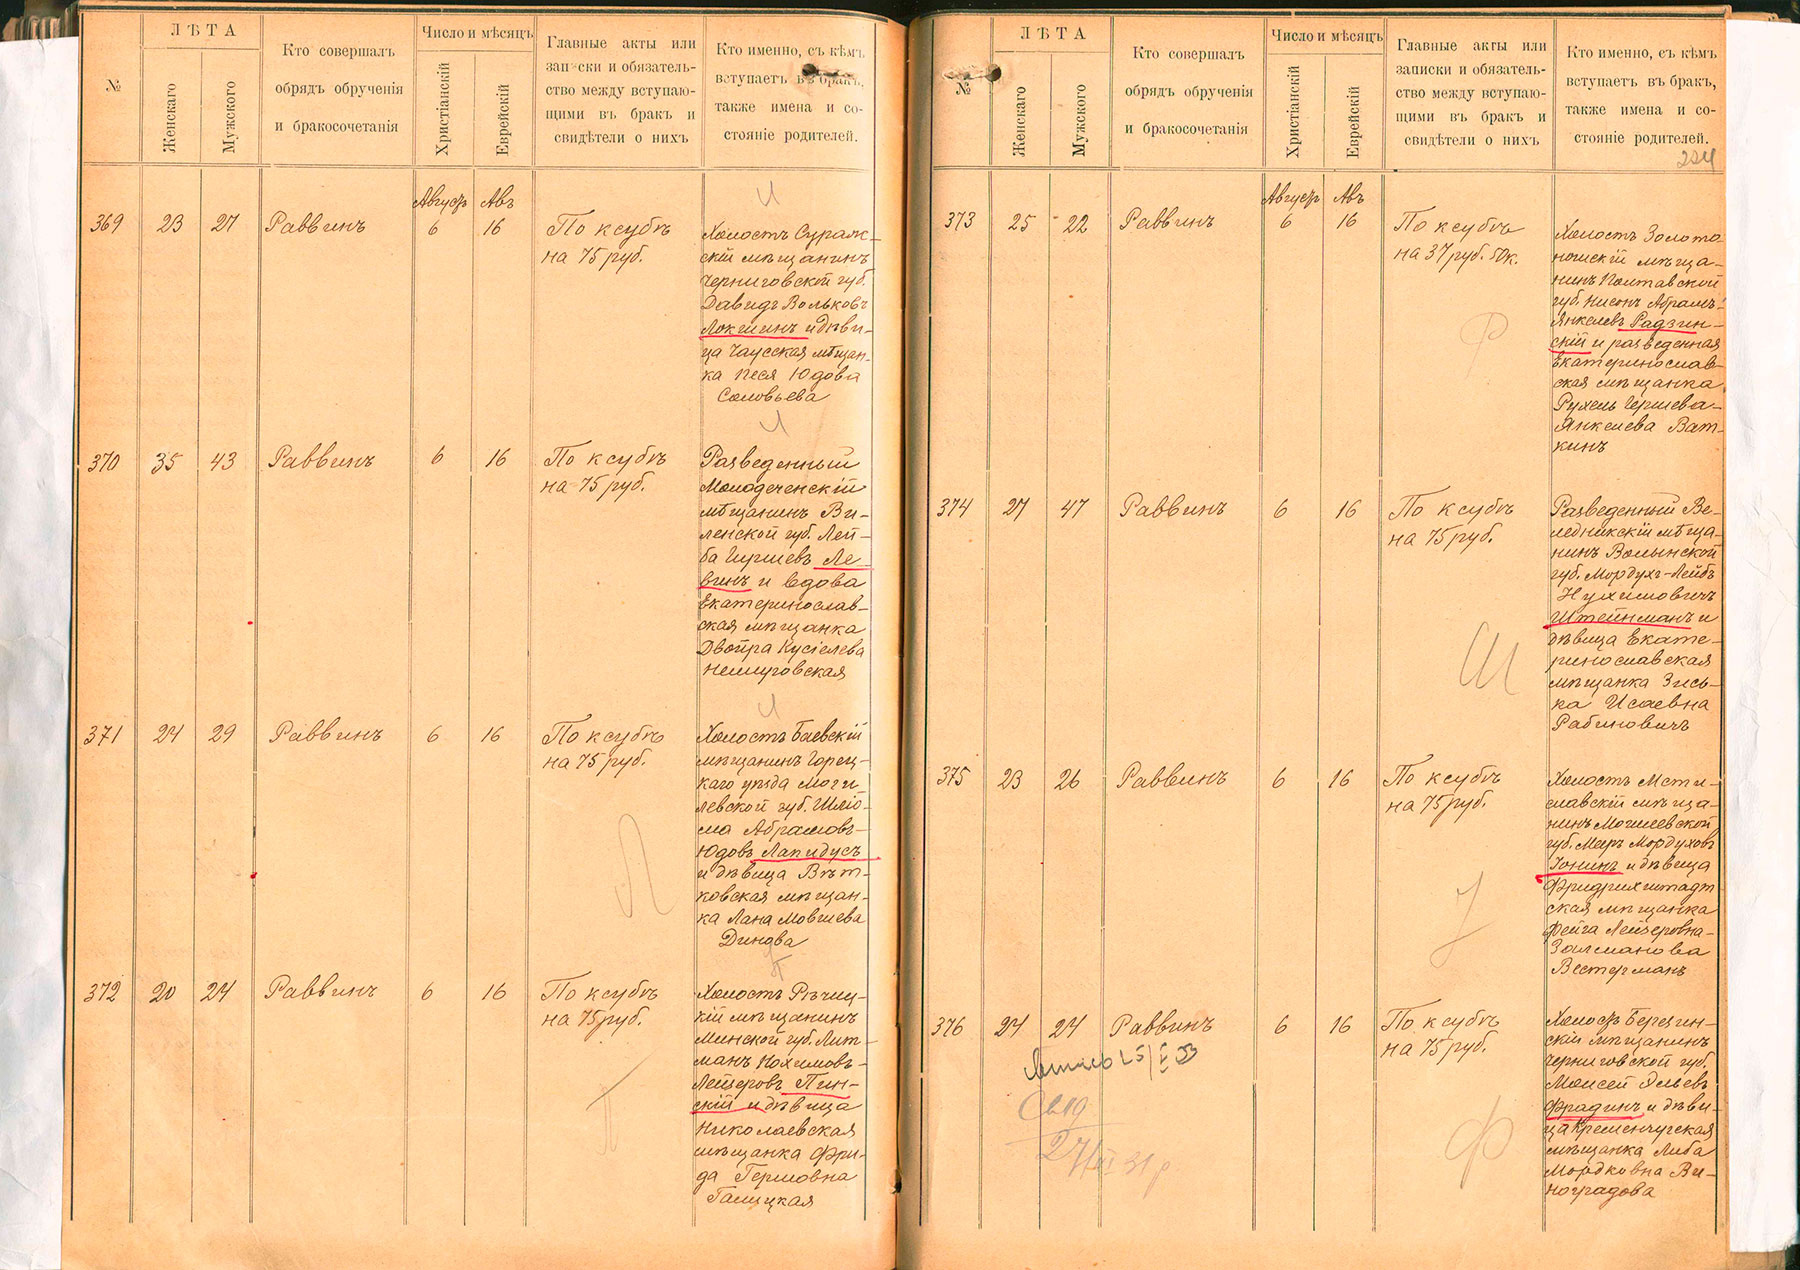 №
ЛѢТА
Женскаго
Мужского
Кто совершалъ
обрядъ обрученія
и бракосочетанія
Число и мѣсяцъ
Христіанскій
Еврейскій
Главные акты или
записки и обязатель-
ство между вступаю-
щими въ бракъ и
свидѣтели о нихъ
Кто именно, съ кѣмъ
вступаетъ въ бракъ,
также имена и со-
стояніе родителей.
Августъ Авъ
369 23 27 Раввинъ 6 16 По ксубѣ
на 75 руб.
Холостъ Сураж-
скій мѣщанинъ
Черниговской губ.
Давидъ Вольковъ
Локшинъ и дѣви-
ца Чаусская мѣщан-
ка Песя Юдова
Соловьева
370 35 43 Раввинъ 6 16 По ксубѣ
на 75 руб.
Разведенный
Молодеченскій
мѣщанинъ Ви-
ленской губ. Лей-
ба Гиршевъ Ле-
винъ и вдова
Екатеринослав-
ская мѣщанка
Двойра Кусіелева
Немировская
371 24 29 Раввинъ 6 16 По ксубѣ
на 75 руб.
Холостъ Баевскій
мѣщанинъ Горец-
каго уѣзда Моги
левской губ. Шліо-
ма Абрамовъ-
Юдовъ Лапидусъ
и дѣвица Вѣт-
ковская мѣщан-
ка Лана Мовшева
Динова
Л
372 20 24 Раввинъ 6 16 По ксубѣ
на 75 руб.
Холостъ Рѣчиц-
кій мѣщанинъ
Минской губ. Лит-
манъ Нохимовъ-
Лейзеровъ Пин-
скій и дѣвица
Николаевская
мѣщанка Фри-
да Гершовна
Галицкая
П
№
ЛѢТА
Женскаго
Мужского
Кто совершалъ
обрядъ обрученія
и бракосочетанія
Число и мѣсяцъ
Христіанскій
Еврейскій
Главные акты или
записки и обязатель-
ство между вступаю-
щими въ бракъ и
свидѣтели о нихъ
Кто именно, съ кѣмъ
вступаетъ въ бракъ,
также имена и со-
стояніе родителей.
224
Августъ Авъ
373 25 22 Раввинъ 6 16 По ксубѣ
на 37 руб. 50к.
Холостъ Золото-
ношскій мѣща-
нинъ Полтавской
губ. Нисонъ Абрамъ-
Янкелевъ Радзин-
скій и разведенная
Екатеринослав-
ская мѣщанка
Рухель Гершева-
Янкелева Ват-
кинъ
Р
374 27 47 Раввинъ 6 16 По ксубѣ
на 75 руб.
Разведенный Ве-
ледникскій мѣща-
нинъ Волынской
губ. Мордухъ-Лейбъ
Нухимовичъ
Штейнманъ и
дѣвица Екате-
ринославская
мѣщанка Зись-
ка Исаевна
Рабиновичъ
Ш
375 23 26 Раввинъ 6 16 По ксубѣ
на 75 руб.
Холостъ Мсти-
славскій мѣща-
нинъ Могилевской
губ. Меръ Мордуховъ
Іонинъ и дѣвица
Фридрихштадт-
ская мѣщанка
Фейга Лейзеровна-
Залманова
Вестерманъ
376 24 24 Раввинъ 6 16 По ксубѣ
на 75 руб.
Холостъ Березин-
скій мѣщанинъ
Черниговской губ.
Моисей Эльевъ
Фрадинъ и дѣви-
ца Кременчугская
мѣщанка Либа
Мордковна Ви-
ноградова
Ф